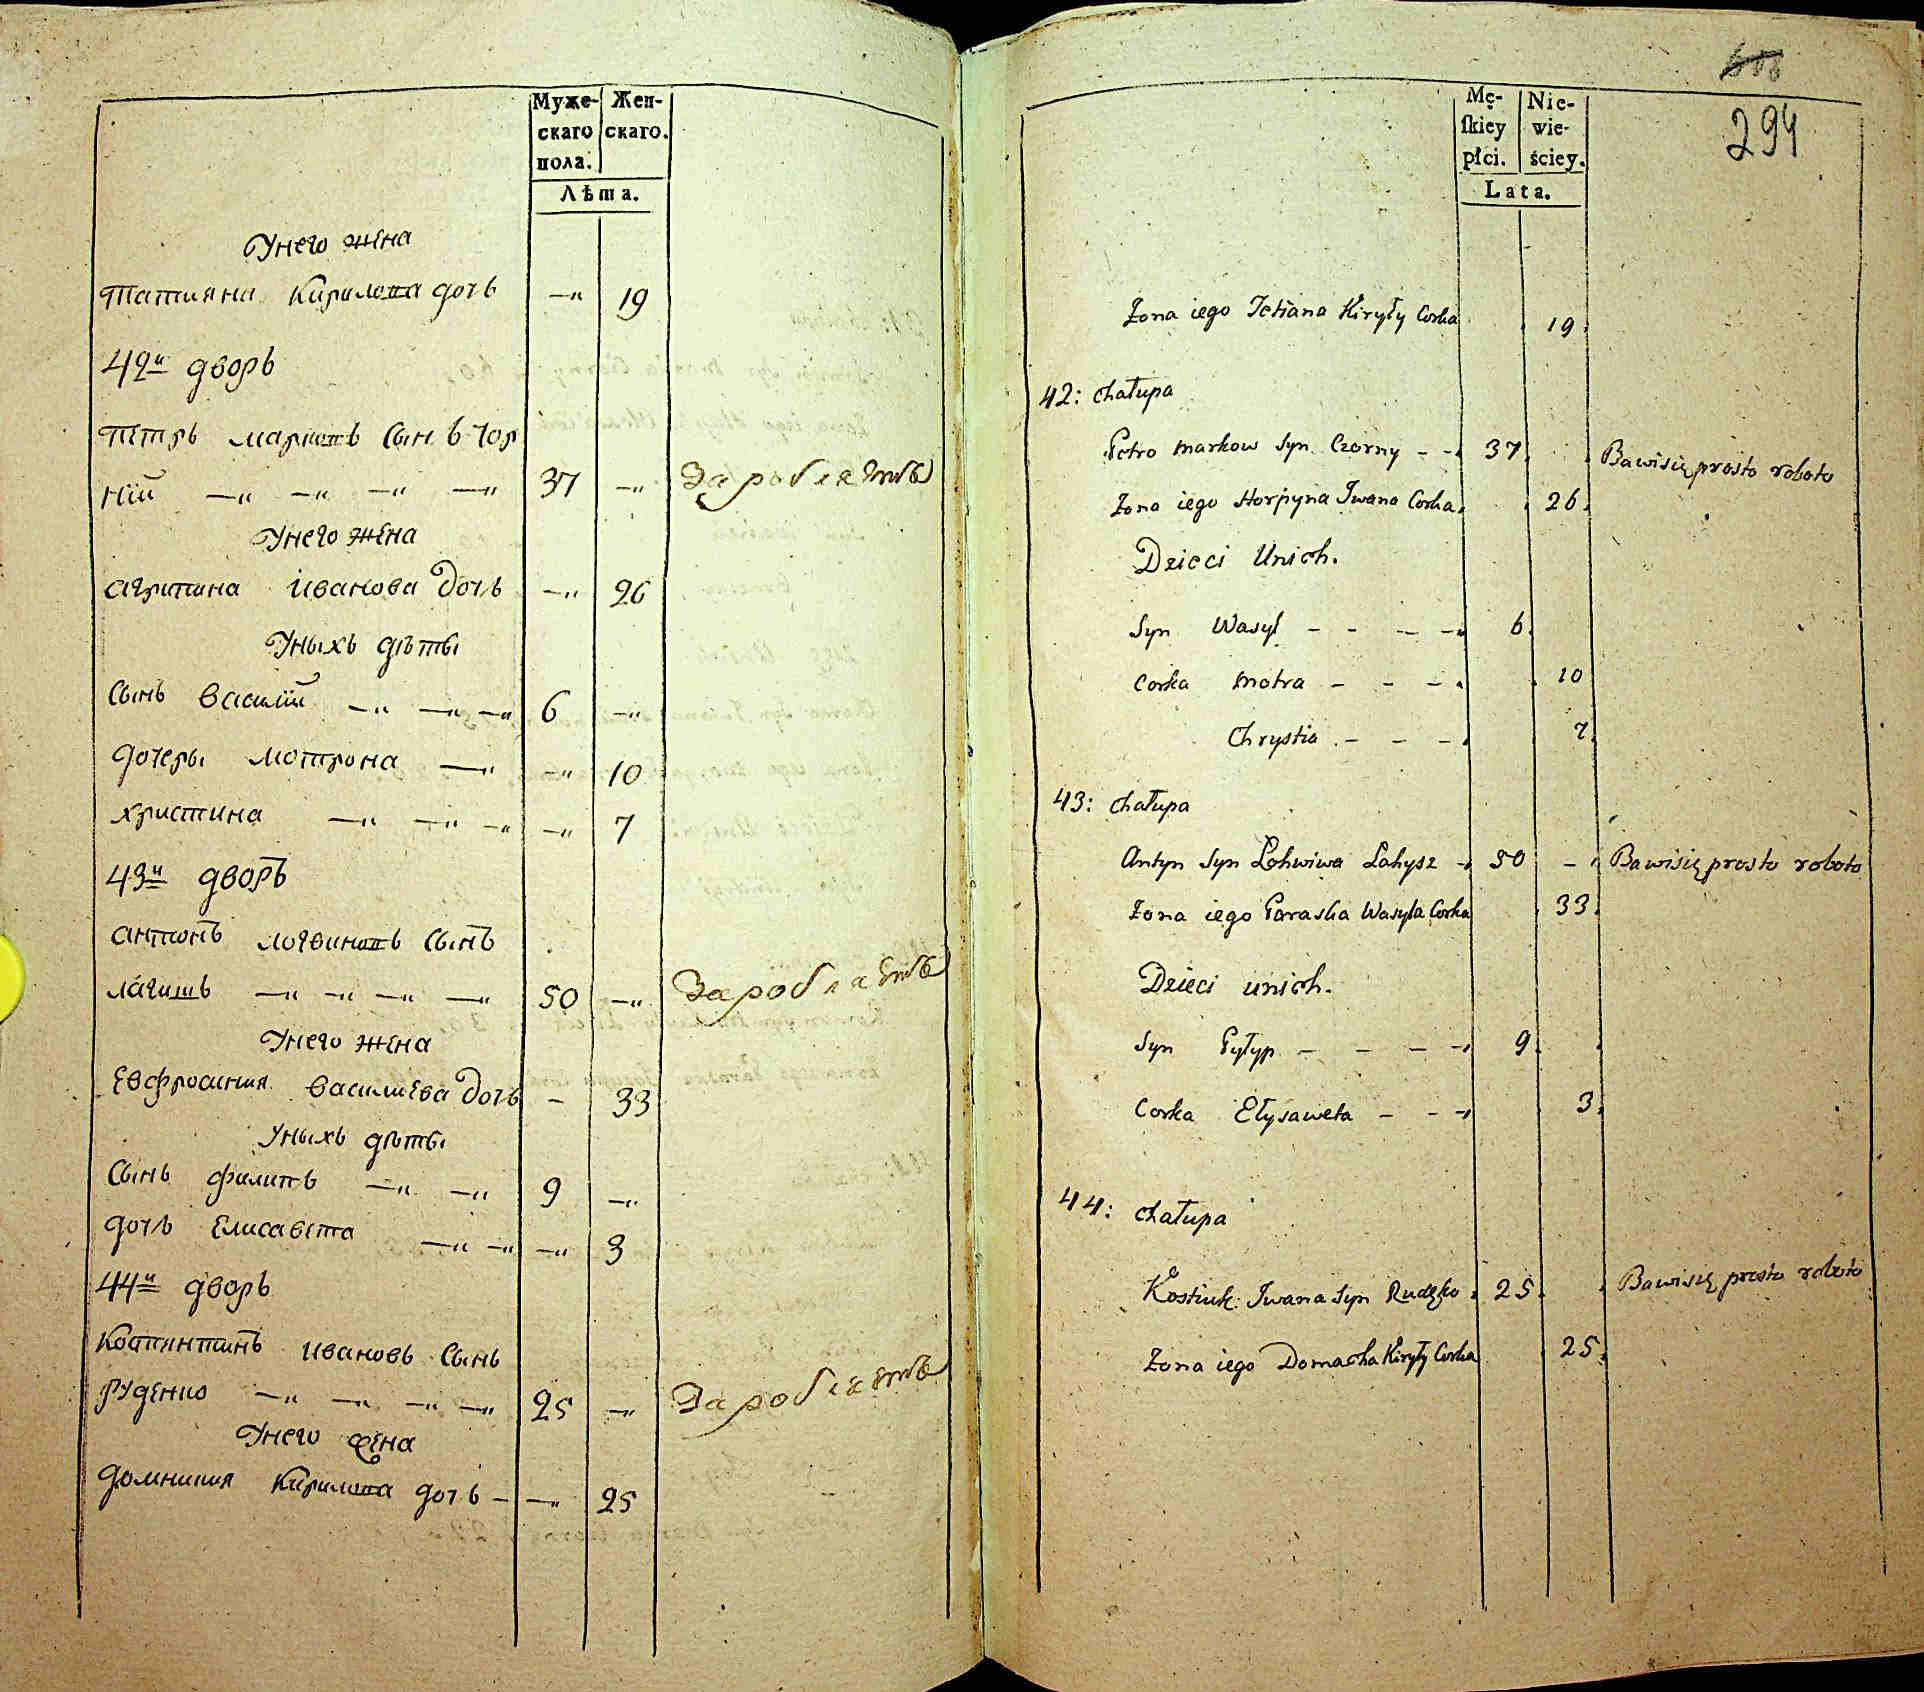 Муже-
скаго
пола.
Жен-
скаго.
Лѣта.
Унего жена
татияна Кирилова дочь —„ 19
42й дворъ
петръ марковъ сынъ чор
ній —„ —„ —„ —„ 37 —„ Заробляетъ
Унего жена
агрипина иванова дочь —„ 26
Уныхъ дѣты
сынъ василій —„ —„ —„ 6 —„
дочеры мотрона —„ —„ 10
христина —„ —„ —„ —„ 7
43й дворъ
антонъ логвиновъ сынъ
лагишъ —„ —„ —„ —„ 50 —„ Заробляетъ
Унего жена
Евфросиния василиева дочь — 33
Уныхъ дѣты
сынъ филипъ —„ —„ 9 —„
дочь Елисавета —„ —„ —„ 3
44й дворъ
Костянтинъ ивановъ сынъ
руденко —„ —„ —„ —„ 25 —„ Заробляетъ
Унего жена
домникия Кирилова дочь — —„ 25
294
Mę-
skiey
płci.
Nie-
wie-
ściey.
Lata.
Żona iego Tetiana Kiryły Corka 19.
42: chałupa
Petro markow Syn Czorny – – 37. Bawisię prosto roboto
Żona iego Horpyna Jwana Corka. 26.
Dzieci Unich.
Syn Wasyl – – – – 6.
Corka motra – – – . 10
Chrystia . – – – . 7.
43: chałupa
Antyn Syn Lohwiwa Lahysz – 50 – Bawisię prosto roboto
Żona iego Paraska Wasyla Corka 33.
Dzieci unich.
Syn Pyłyp – – – – 9.
Corka Ełysaweta – – – 3.
44: chałupa
Kostiuk Jwana Syn Rudęko . 25. Bawisię prosto roboto
Żona iego Domacha Kiryły Corka 25.